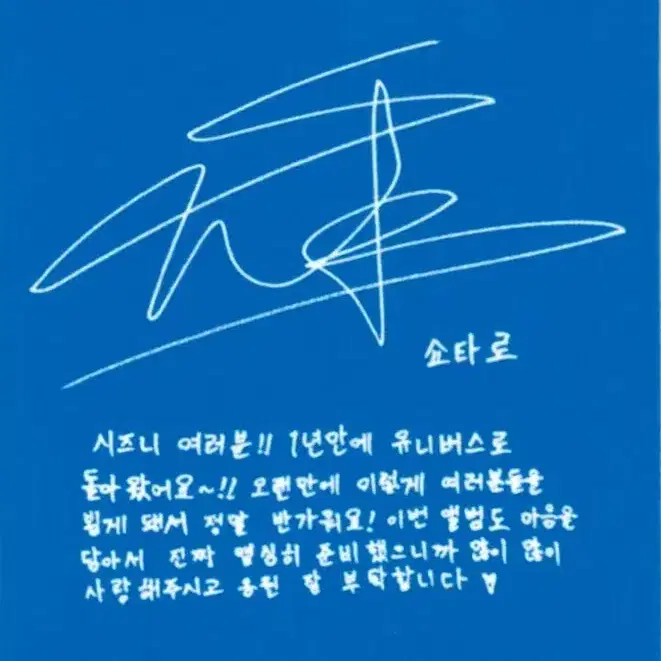 쇼타로
시즈니 여러분!! 1년안에 유니버스로
돌아왔어요~!! 오랜만에 이렇게 여러분들을
뵙게 돼서 정말 반가워요! 이번 앨범도 마음을
담아서 진짜 열심히 준비했으니까 많이 많이
사랑해주시고 응원 잘 부탁합니다